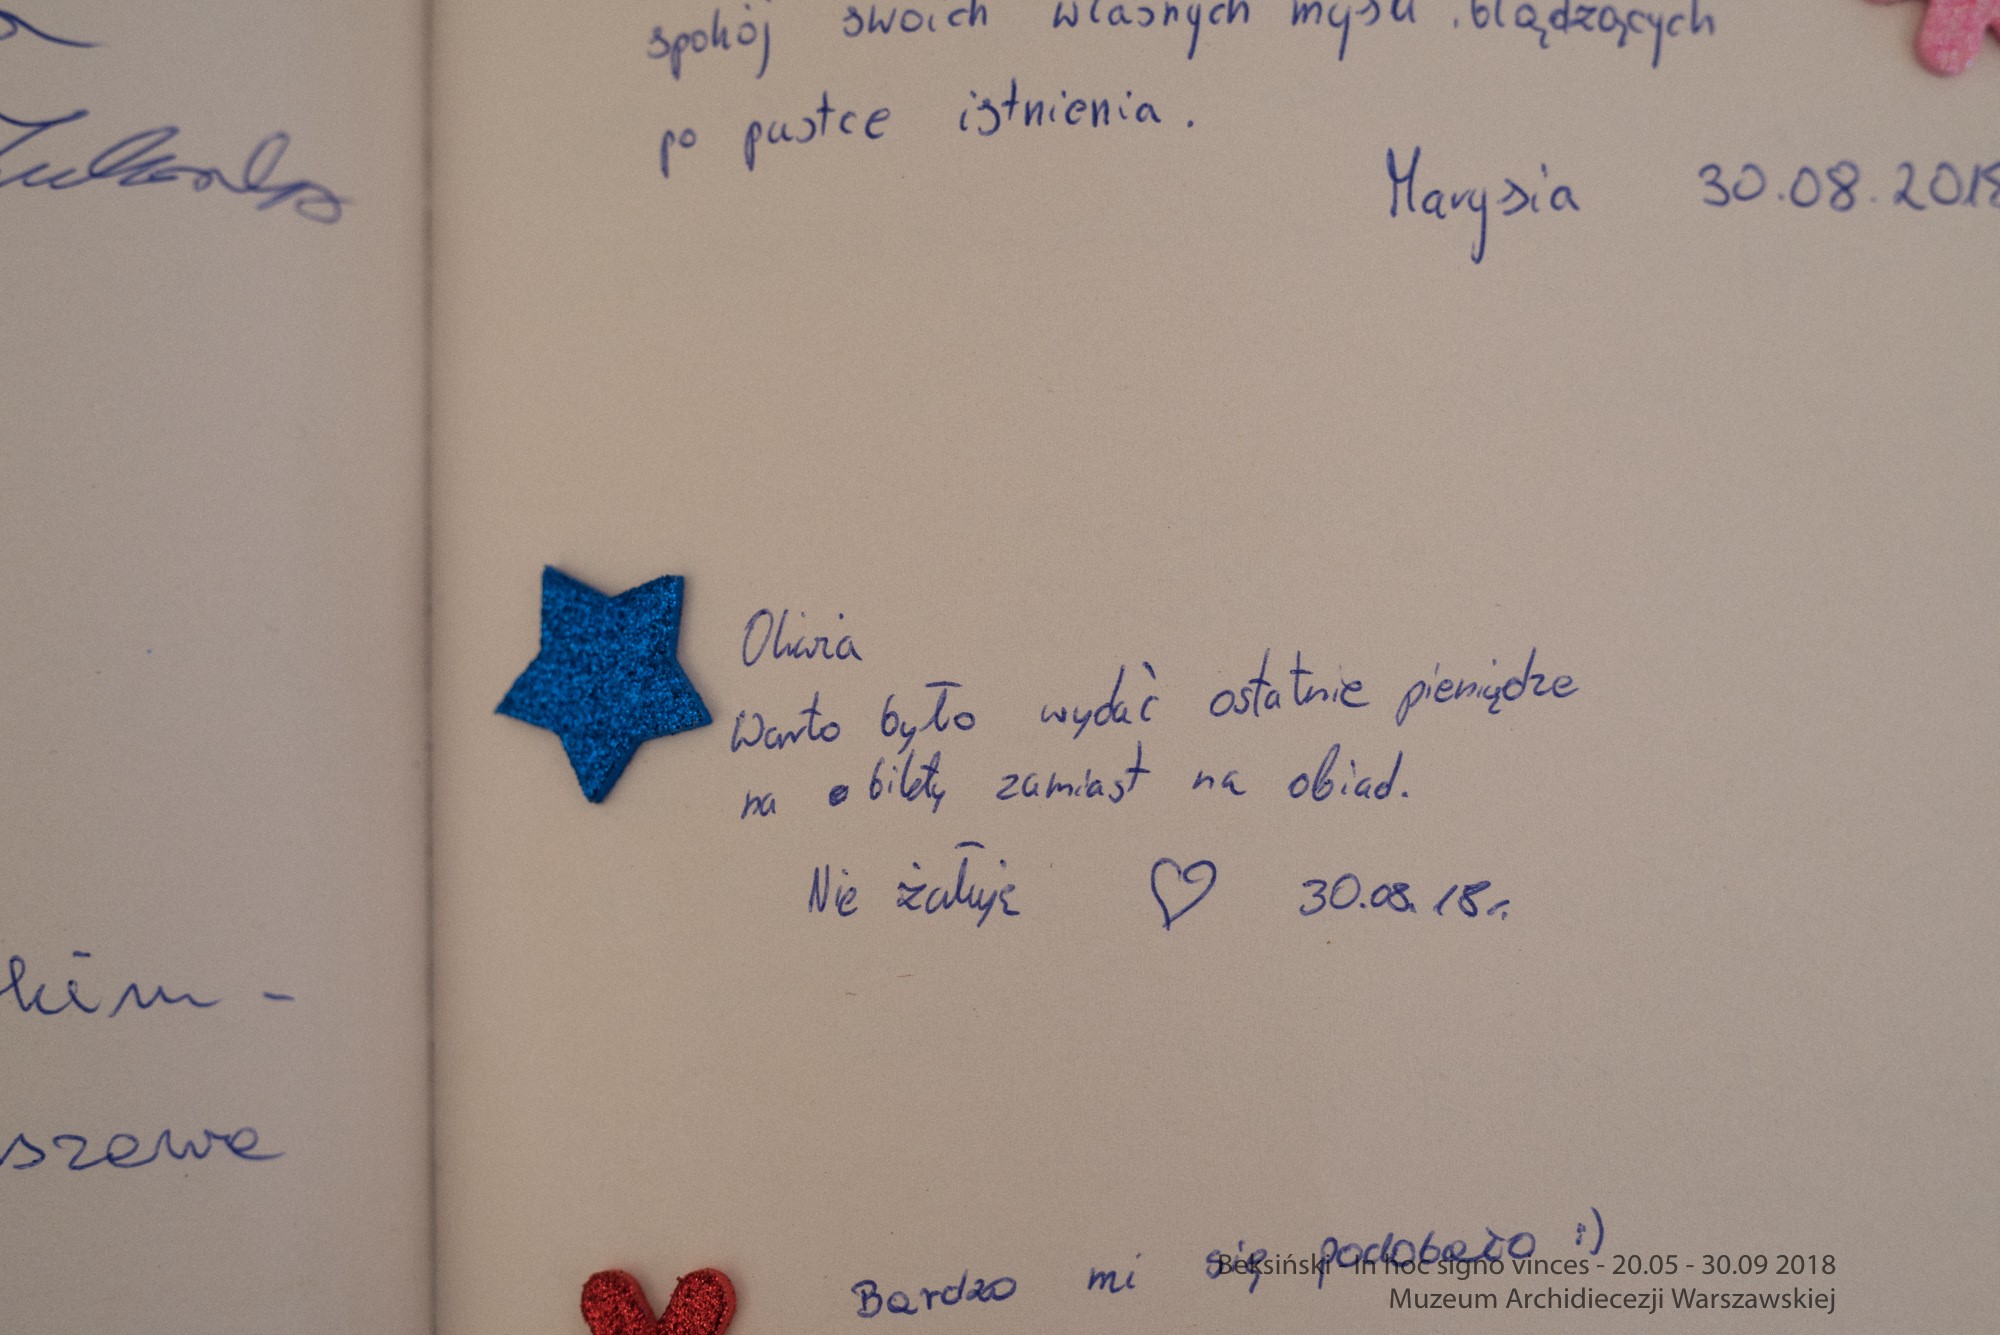 spokój swoich własnych myśli błądzących
po pustce istnienia.
Marysia 30.08.2018
Oliwia
Warto było wydać ostatnie pieniądze
na bilety zamiast na obiad.
Nie żałuję ♡ 30.08.18r.
szawa
Bardzo mi się podobało :)
Beksiński - in hoc signo vinces - 20.05 - 30.09 2018
Muzeum Archidiecezji Warszawskiej